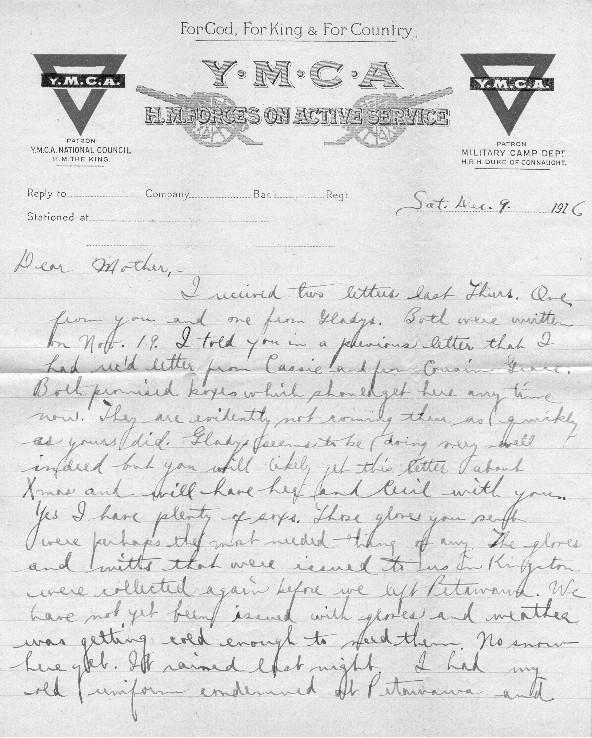 For God, For King & For Country.
Y·M·C·A
H.M. FORCES ON ACTIVE SERVICE
Y.M.C.A.
PATRON
Y.M.C.A. NATIONAL COUNCIL
H.M. THE KING.
Y.M.C.A.
PATRON
MILITARY CAMP DEPT
H.R.H. DUKE OF CONNAUGHT.
Reply to Company Batt. Regt
Stationed at
Sat. Dec. 9. 1916
Dear Mother,-
I received two letters last Thurs. One
from you and one from Gladys. Both were written
on Nov. 19. I told you in a previous letter that I
had rec'd letter from Cassie and from Cousin Grace.
Both promised boxes which should get here any time
now. They are evidently not coming thru as quickly
as yours did. Gladys seems to be doing very well
indeed but you will likely get this letter about
Xmas and will have her and Cecil with you.
Yes I have plenty of soxs. Those gloves you sent
were perhaps the most needed thing of any. The gloves
and mitts that were issued to us in Kingston
were collected again before we left Petawawa. We
have not yet been issued with gloves and weather
was getting cold enough to need them. No snow
here yet. It rained last night. I had my
old uniform condemned at Petawawa and